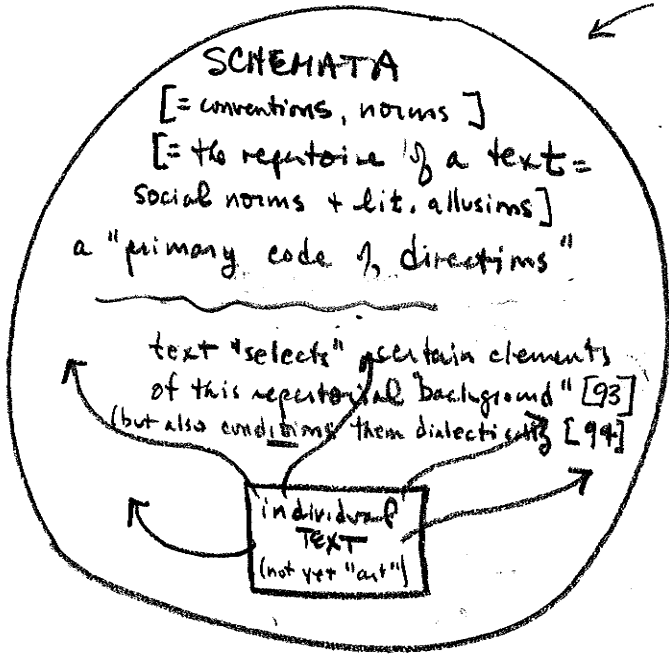 SCHEMATA
[= conventions, norms ]
[= the repertoire of a text =
social norms + lit. allusions]
a "primary code of directions"
text "selects" certain elements
of this repertorial "background" [93]
(but also conditions them dialectically [94]
individual
TEXT
(not yet "art")